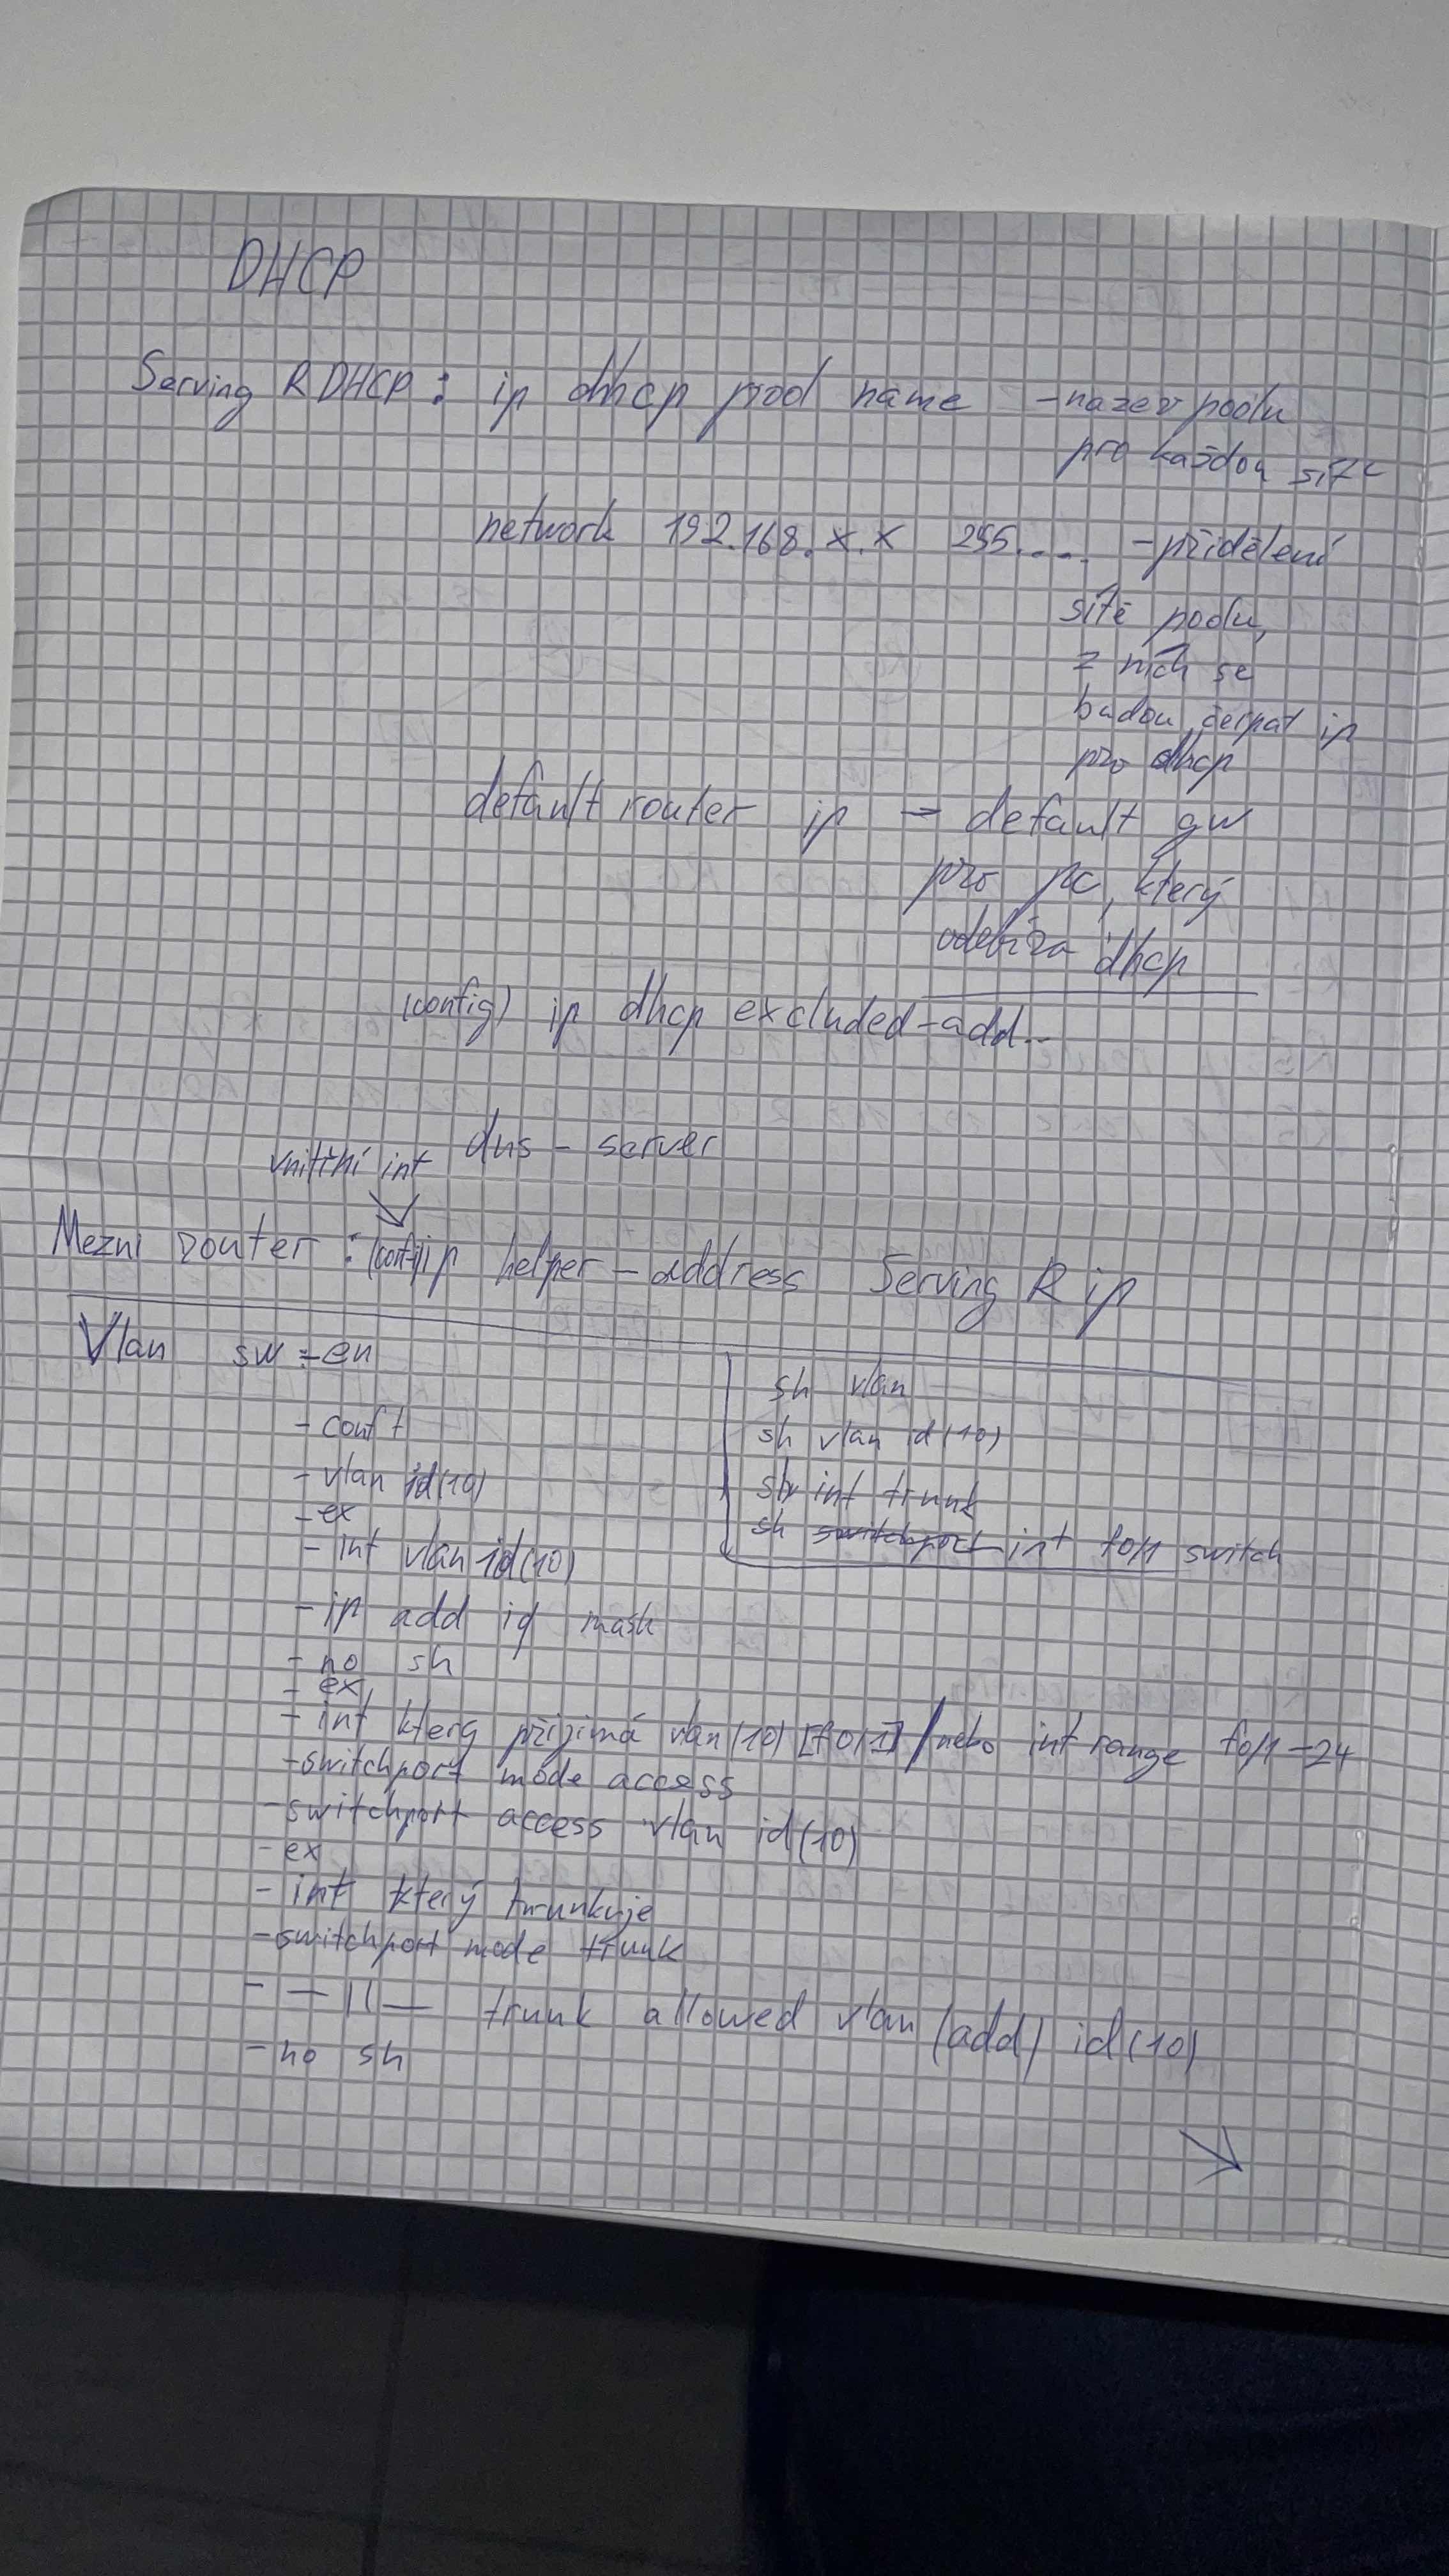 DHCP
Serving R DHCP: ip dhcp pool name - nazev poolu
pro každou síť
network 192.168.x.x 255.... - přidělení
sítě poolu,
z nich se
budou čerpat ip
pro dhcp
default router ip - default gw
pro pc, který
odebíra dhcp
(config) ip dhcp excluded-add..
dns - server
vnitřní int
Mezni router: (config) ip helper-address Serving R ip
Vlan sw = -en
- conf t
- vlan id(10)
- ex
- int vlan id(10)
- ip add ip mask
- no sh
- ex
- int který přijimá vlan(10) [f0/1] / nebo int range fo/1-24
- switchport mode access
- switchport access vlan id(10)
- ex
- int který trunkuje
- switchport mode trunk
- —||— trunk allowed vlan (add) id(10)
- no sh
sh vlan
sh vlan id(10)
sh int trunk
sh switchport int fo/1 switch